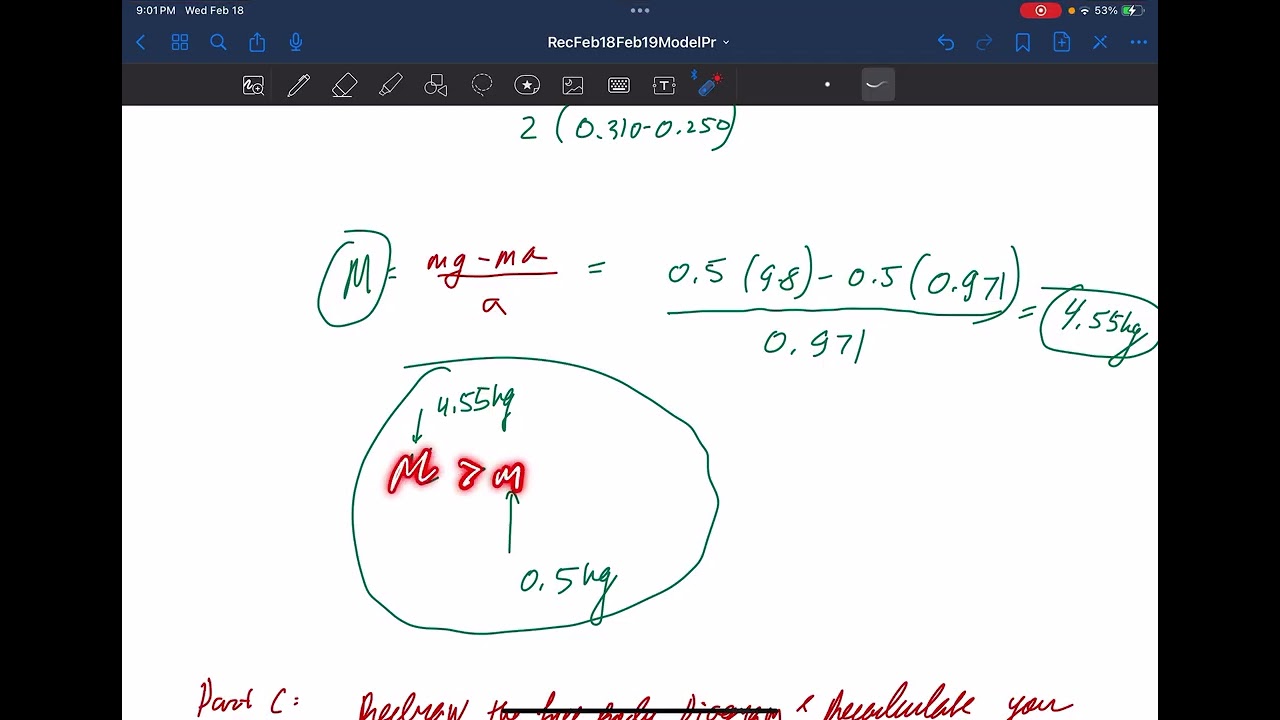 9:01 PM Wed Feb 18
53%
RecFeb18Feb19ModelPr
2 (0.310-0.250)
M = mg - ma / a = 0.5 (9.8) - 0.5 (0.971) / 0.971 = 4.55kg
4.55kg
M > m
0.5kg
Part C: Redraw the free body Diagram & Recalculate your